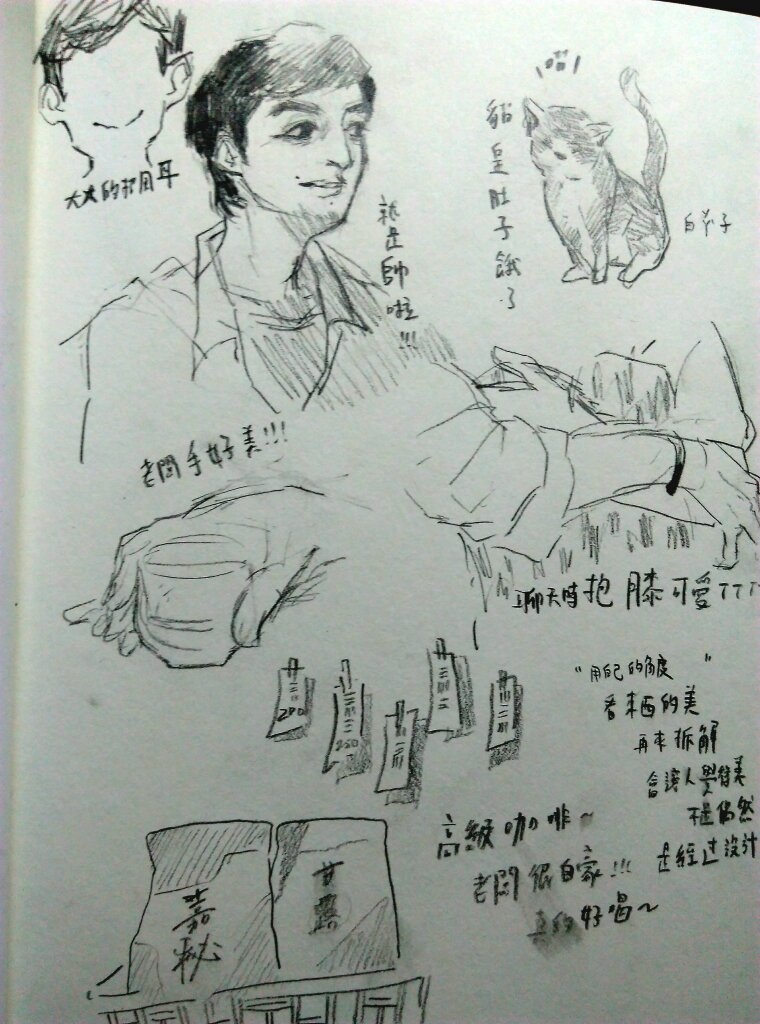 喵
貓皇肚子餓了
白茶子
大大的招風耳
就是帥啦!!!
老闆手好美!!!
聊天時抱膝可愛TTT
200
250
"用自己的角度"
看東西的美
再來拆解
會讓人覺得美
不是偶然
是經過設計
高級咖啡~
老闆很自豪!!!
真的好喝~
嘉秘
甘露